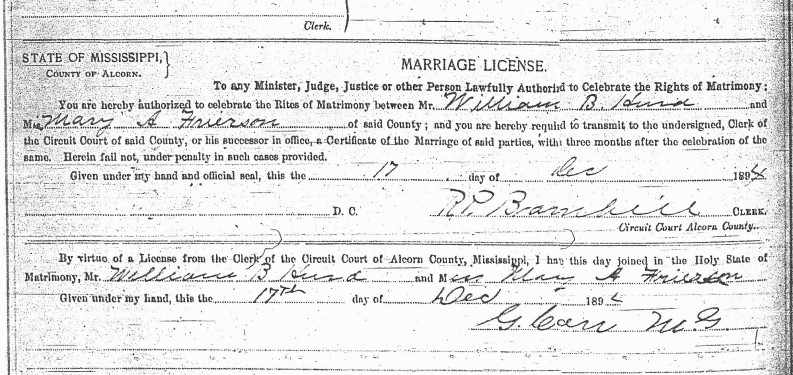 Clerk.
STATE OF MISSISSIPPI,
COUNTY OF ALCORN.
MARRIAGE LICENSE.
To any Minister, Judge, Justice or other Person Lawfully Authorid to Celebrate the Rights of Matrimony:
You are hereby authorized to celebrate the Rites of Matrimony between Mr. William B. Hurd and
Miss Mary A Frierson of said County; and you are hereby requird to transmit to the undersigned, Clerk of
the Circuit Court of said County, or his successor in office, a Certificate of the Marriage of said parties, with three months after the celebration of
same. Herein fail not, under penalty in such cases provided.
Given under my hand and official seal, this the 17 day of Dec 1894
D. C. CLERK.
Circuit Court Alcorn County.
By virtue of a License from the Clerk of the Circuit Court of Alcorn County, Mississippi, I have this day joined in the Holy State of
Matrimony, Mr. William B Hurd and Miss Mary A Frierson
Given under my hand, this the 17th day of Dec 1894
G. Carr M.G.